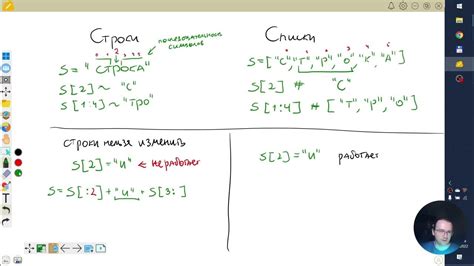 Строки
последовательность символов
0 1 2 3 4 5
S = "СТРОСА"
S[2] ~ "С"
S[1:4] ~ "ТРО"
Списки
0 1 2 3 4 5
S=["С","Т","Р","О","К","А"]
S[2] # "С"
S[1:4] # ["Т","Р","О"]
строки нельзя изменить
S[2]="и" не работает
S=S[:2]+"и"+S[3:]
S[2]="и" работает